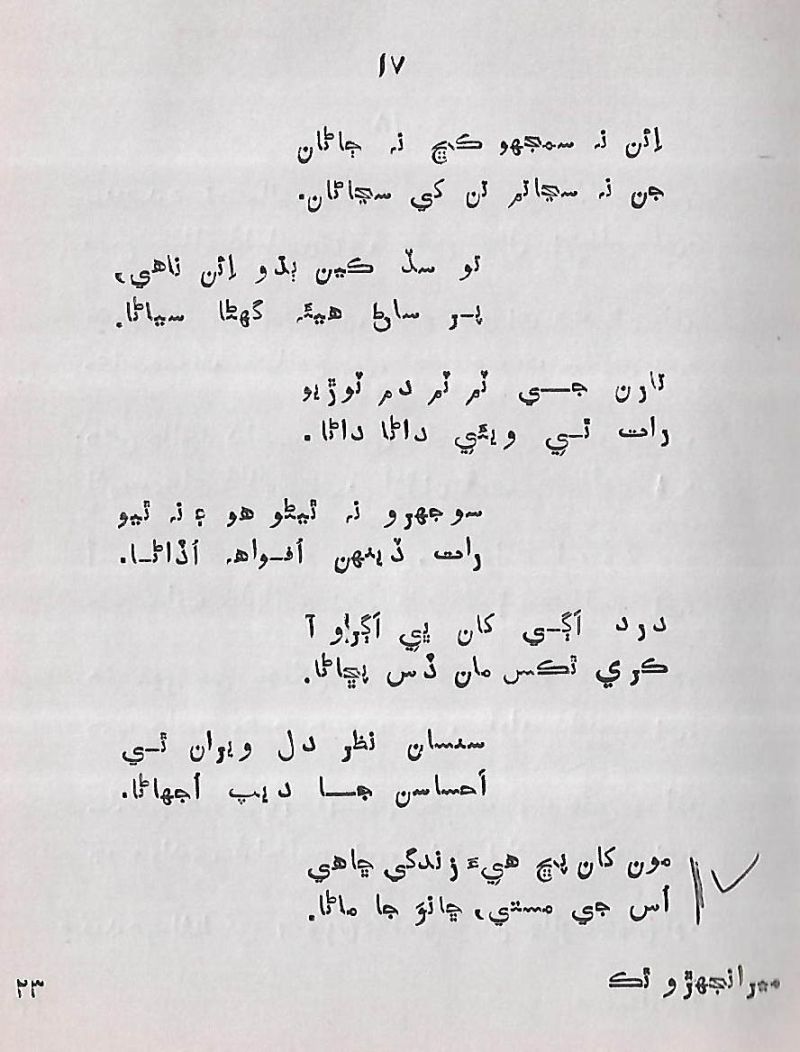 ۱۷
اِئن نہ سمجهو ڪجهہ نہ ڄاڻان
جن نہ سڃاتم تن کي سڃاڻان.
تو سڏ ڪين ٻڌو اِئن ناهي،
پــر ساڻ هيئہ گهڻا سياڻا.
تارن جــــي ٽم ٽم دم ٽوڙيو
رات ٿــي ويئي داڻا داڻا.
سوجهرو نہ ٿيڻو هو ۽ نہ ٿيو
رات ڏينهن اَفــواهہ اُڏاڻــا.
درد اَڳــي کان ڀي اَڳرو آ
ڪري ٿڪس مان ڏس پڇاڻا.
سنسان نظر دل ويران ٿــي
اَحساسن جــــا ديپ اُجهاڻا.
مون کان پڇ هيءَ زندگي ڇاهي
اُس جي مستي، ڇانوَ جا ماڻا.
رانجهڙو ٿڪ
۲۳